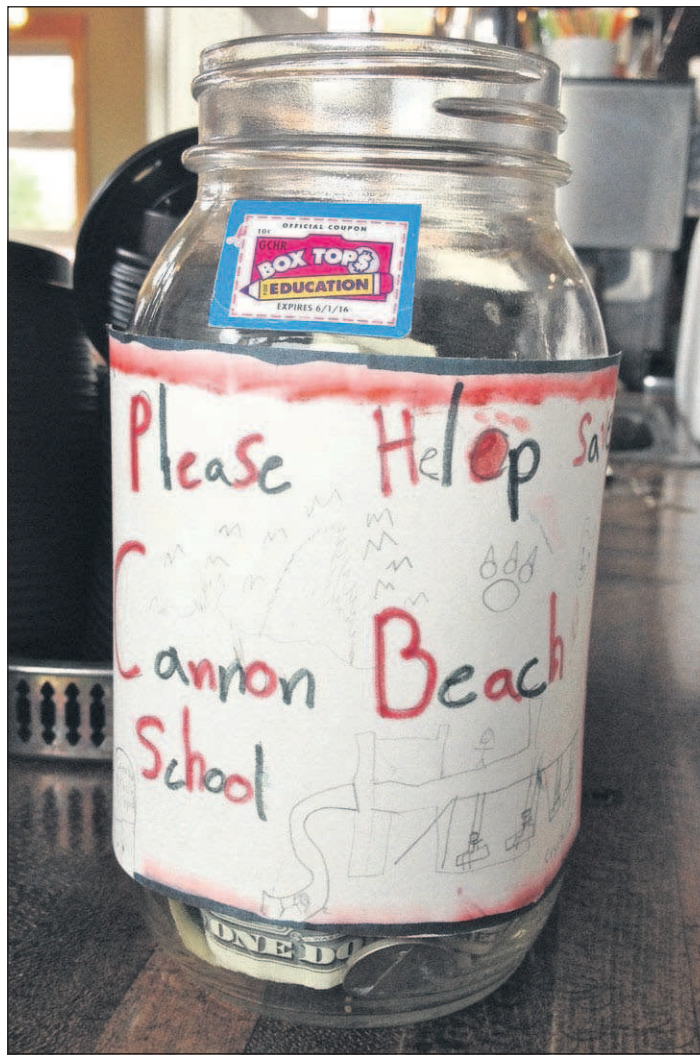 OFFICIAL COUPON
10¢
GCHR
BOX TOPS
FOR EDUCATION
EXPIRES 6/1/16
Please Help
Cannon Beach
School
ONE DO